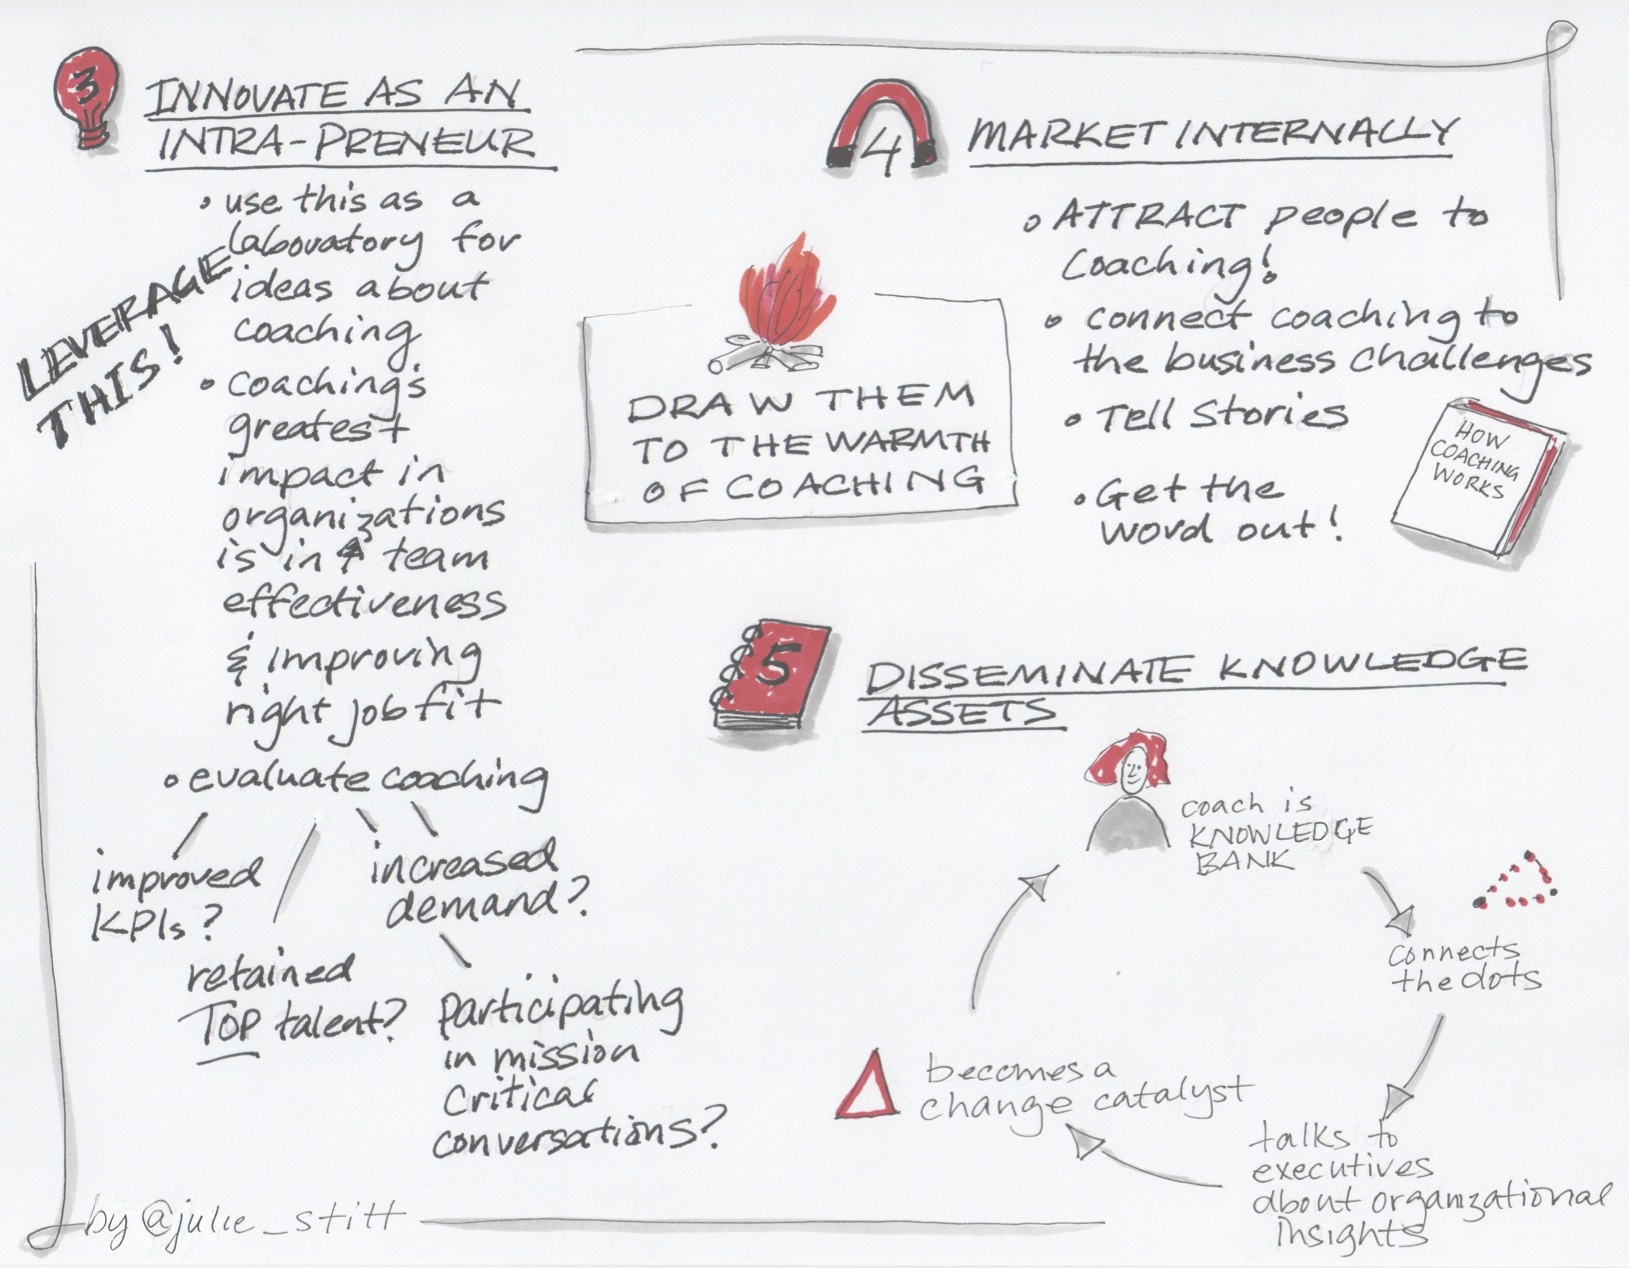 3
INNOVATE AS AN
INTRA-PRENEUR
• use this as a
laboratory for
ideas about
coaching
LEVERAGE
THIS!
• coaching's
greatest
impact in
organizations
is in ↑ team
effectiveness
& improving
right job fit
• evaluate coaching
improved
KPIs?
retained
TOP talent?
increased
demand?
participating
in mission
critical
conversations?
DRAW THEM
TO THE WARMTH
OF COACHING
4
MARKET INTERNALLY
• ATTRACT people to
Coaching!
• connect coaching to
the business challenges
• Tell Stories
• Get the
word out!
HOW
COACHING
WORKS
5
DISSEMINATE KNOWLEDGE
ASSETS
coach is
KNOWLEDGE
BANK
connects
the dots
talks to
executives
about organizational
insights
becomes a
change catalyst
by @julie_stitt